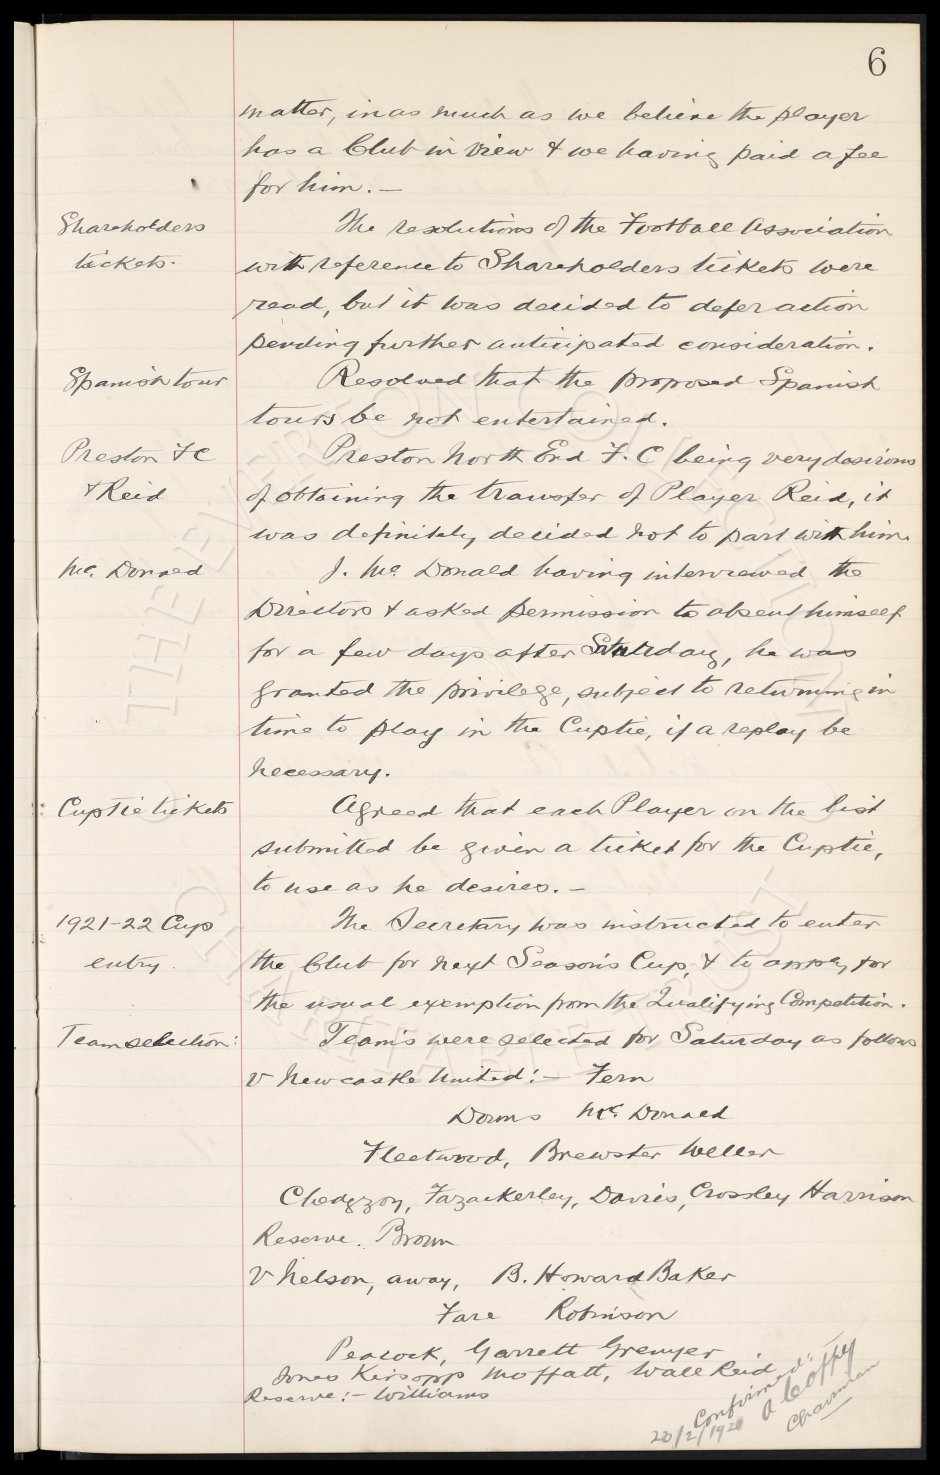 6
matter, in as much as we believe the player
has a Club in view & we having paid a fee
for him. —
Shareholders tickets.
The resolutions of the Football Association
with reference to Shareholders tickets were
read, but it was decided to defer action
pending further anticipated consideration.
Spanish tour
Resolved that the proposed Spanish
tours be not entertained.
Preston F C & Reid
Preston North End F. C being very desirous
of obtaining the transfer of Player Reid, it
was definitely decided not to part with him.
Mc. Donald
J. Mc Donald having interviewed the
Directors & asked permission to absent himself
for a few days after Saturday, he was
granted the privilege, subject to returning in
time to play in the Cuptie, if a replay be
necessary.
Cup Tie tickets
Agreed that each Player on the list
submitted be given a ticket for the Cuptie,
to use as he desires. —
1921-22 Cup entry.
The Secretary was instructed to enter
the Club for next Season's Cup, & to apply for
the usual exemption from the Qualifying Competition.
Team selection:
Team's were selected for Saturday as follows
v Newcastle United:— Fern
Downs Mc. Donald
Fleetwood, Brewster Weller
Chedgzoy, Fazackerley, Davies, Crossley Harrison
Reserve. Brown
v Nelson, away, B. Howard Baker
Fare Robinson
Peacock, Garrett Grenyer
Jones Kirsopp Moffatt, Wall Reid
Reserve:— Williams
Confirmed:
A Coffey
Chairman
THE EVERTON